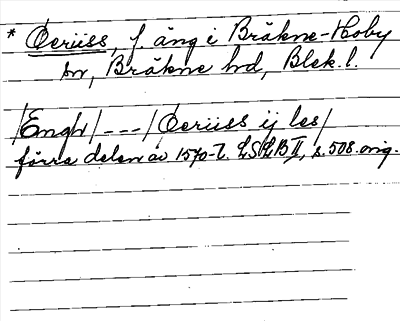 * Öeriiss, f. äng i Bräkne-Hoby
sn, Bräkne hd, Blek. l.
/Engh/ --- / Öeriiss ij les/
förra delen av 1570-t. LSHB II, s. 508. orig.